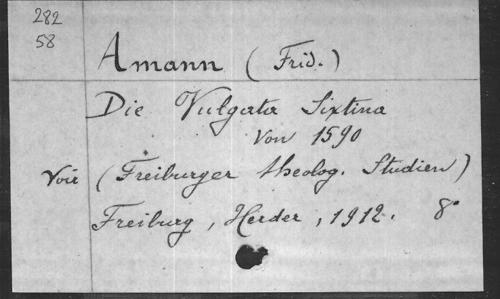 282
58
Amann (Frid.)
Die Vulgata Sixtina
von 1590
Voir (Freiburger theolog. Studien)
Freiburg, Herder, 1912. 8°